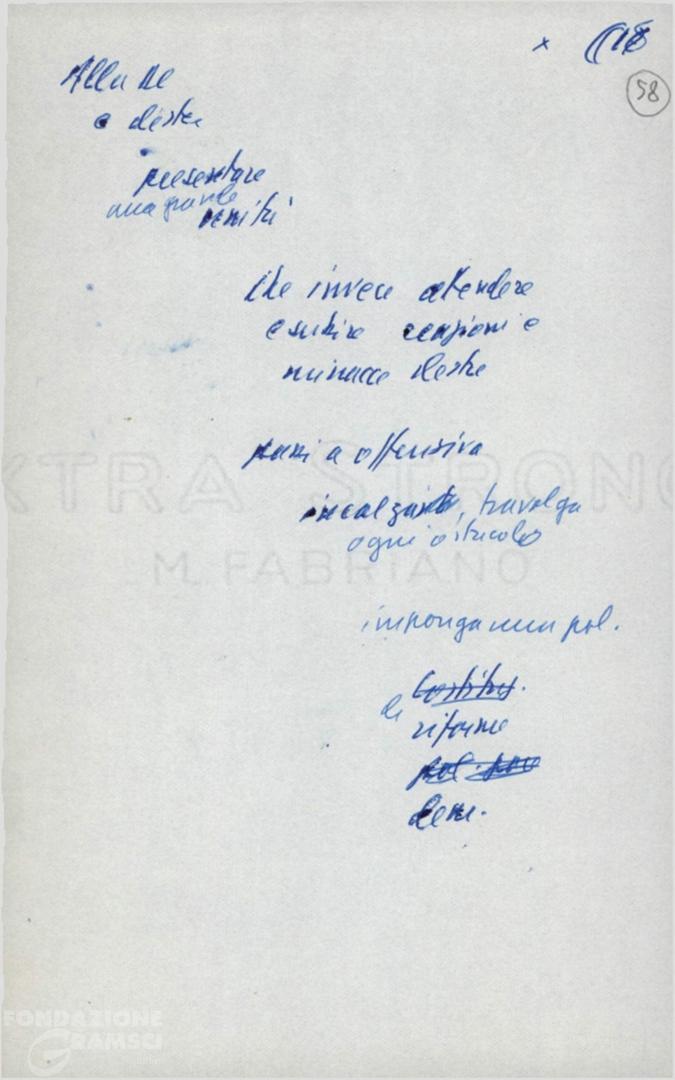 x (18
58
Alla DC
e destre
presentare
una grande
unità
che invece attendere
e subire reazioni e
minacce destre
passi a offensiva
incalzante, travolga
ogni ostacolo
imponga una pol.
di Costituz.
riforme
pol. nuo
dem.
EXTRA STRONG
M. FABRIANO
FONDAZIONE
GRAMSCI